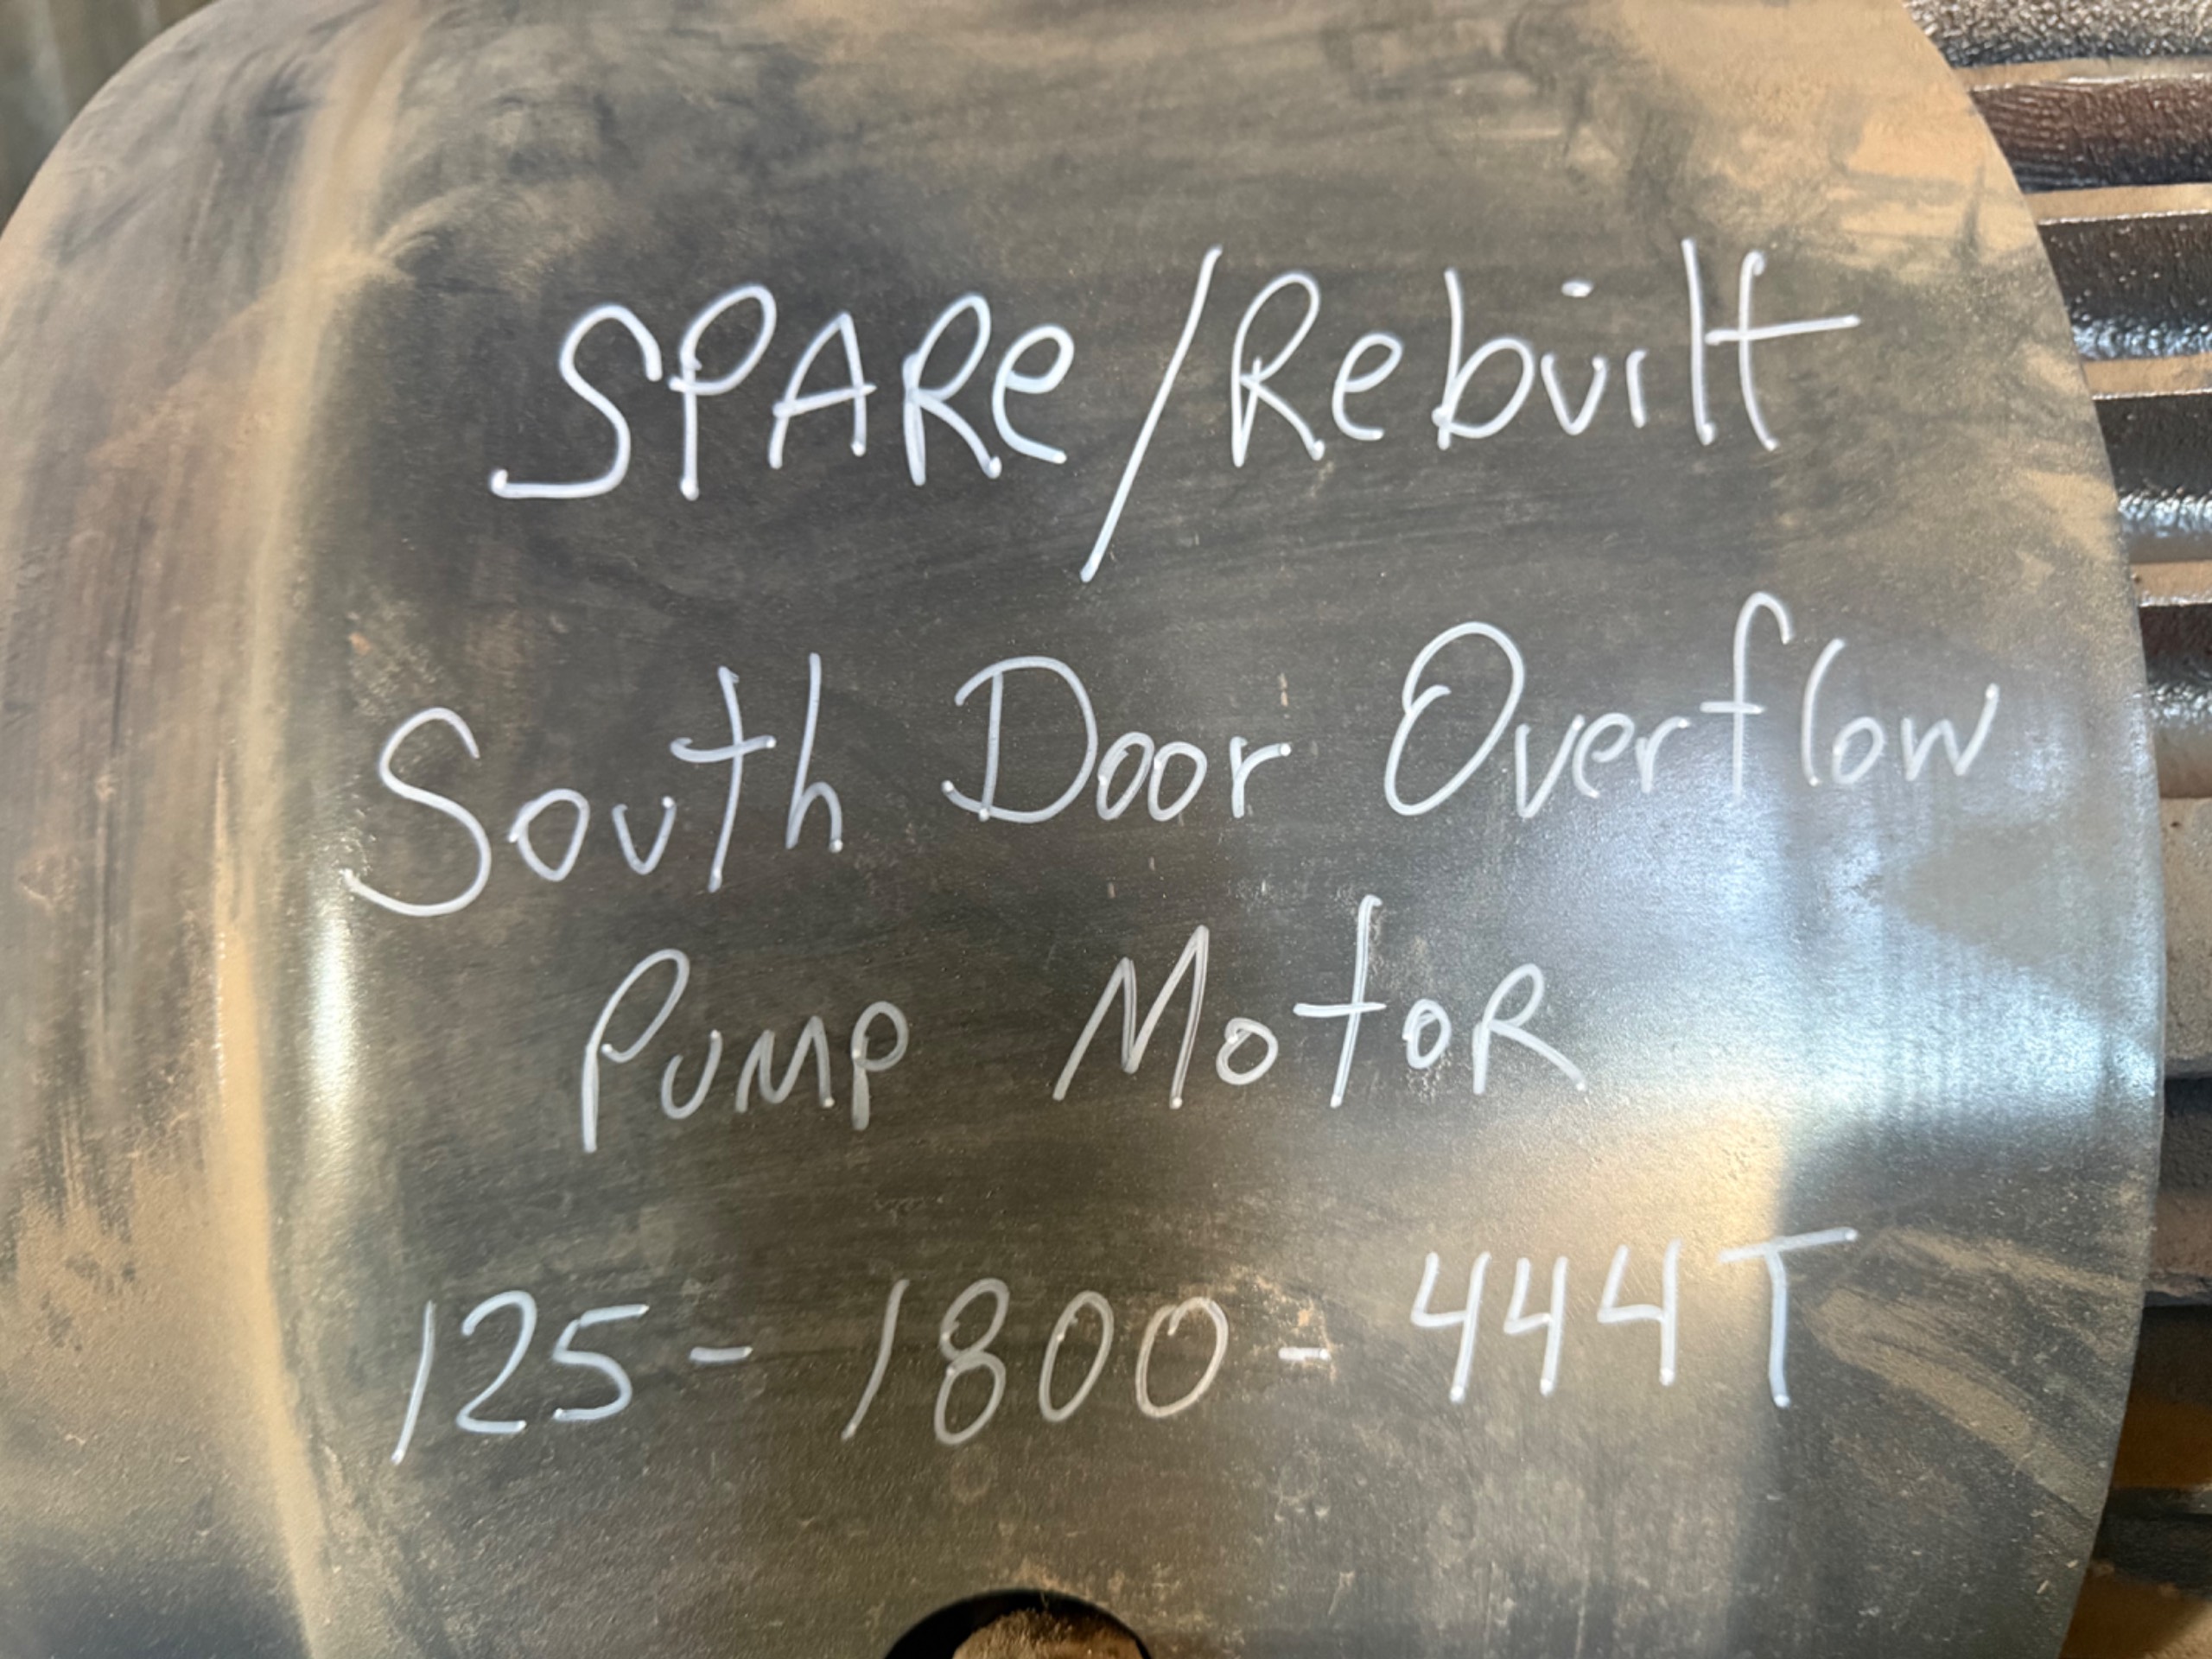 SPARe/Rebuilt
South Door Overflow
PUMP MotoR
125- 1800- 444T